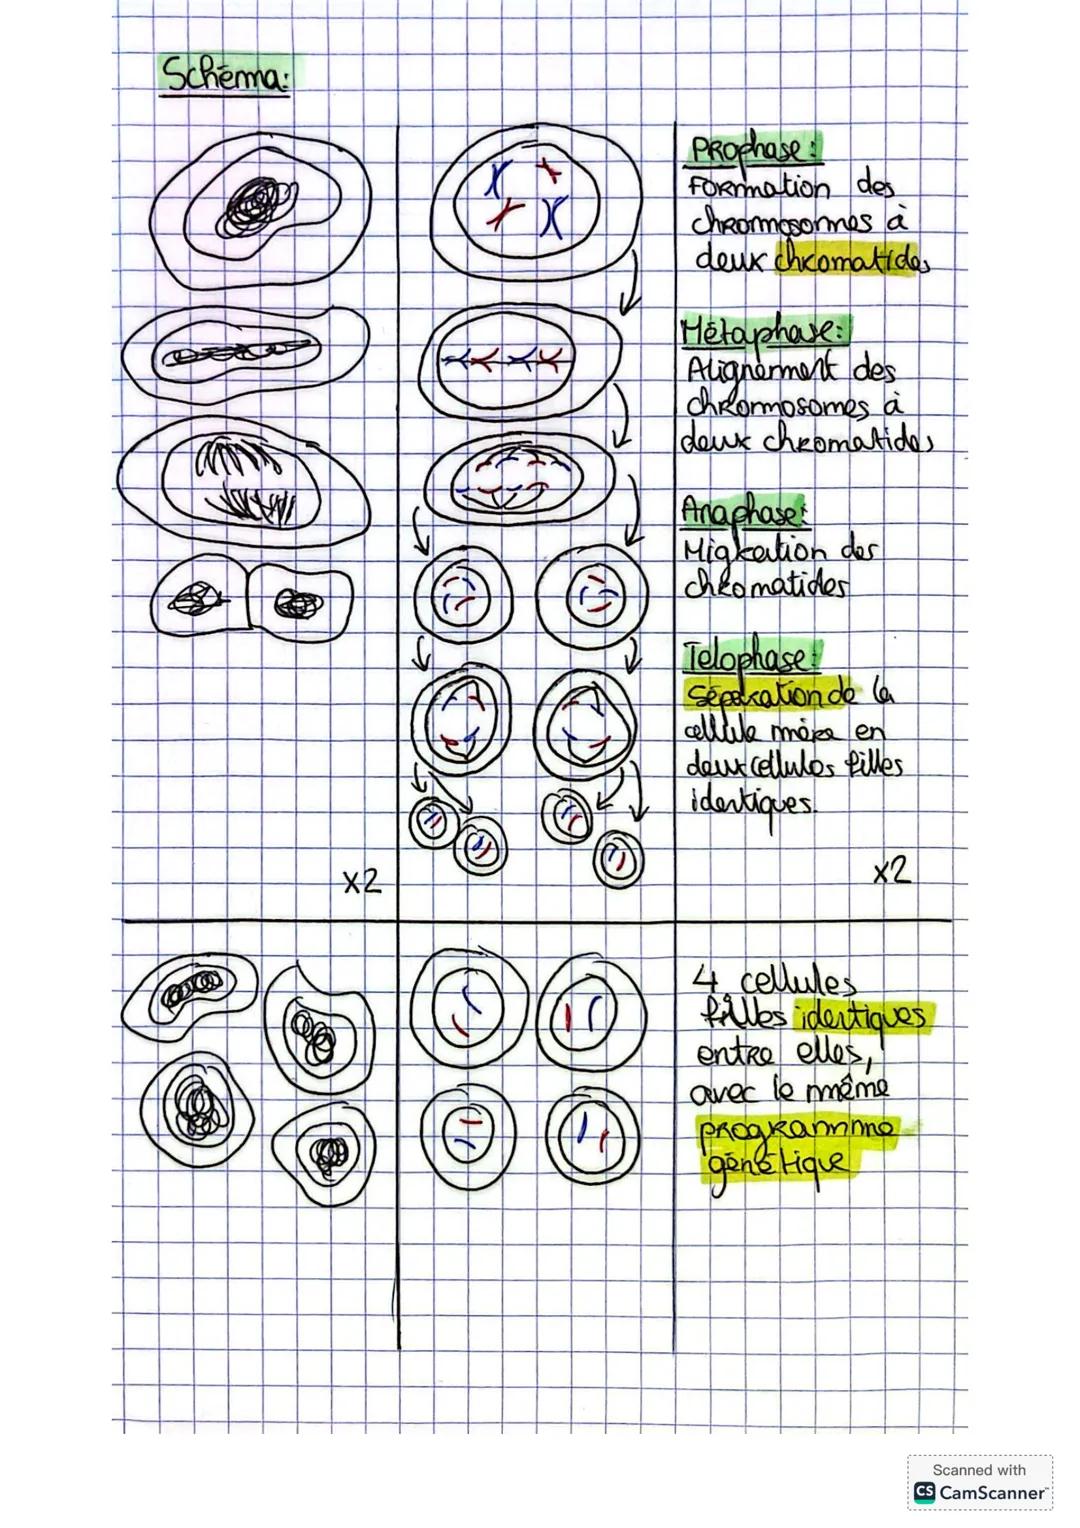 Schéma:
Prophase:
Formation des
chromosomes à
deux chromatides
Métaphase:
Alignement des
chromosomes à
deux chromatides
Anaphase:
Migration des
chromatides
Telophase:
Séparation de la
cellule mère en
deux cellules filles
identiques.
x2
x2
4 cellules
filles identiques
entre elles,
avec le même
programme
génétique
Scanned with
CS CamScanner